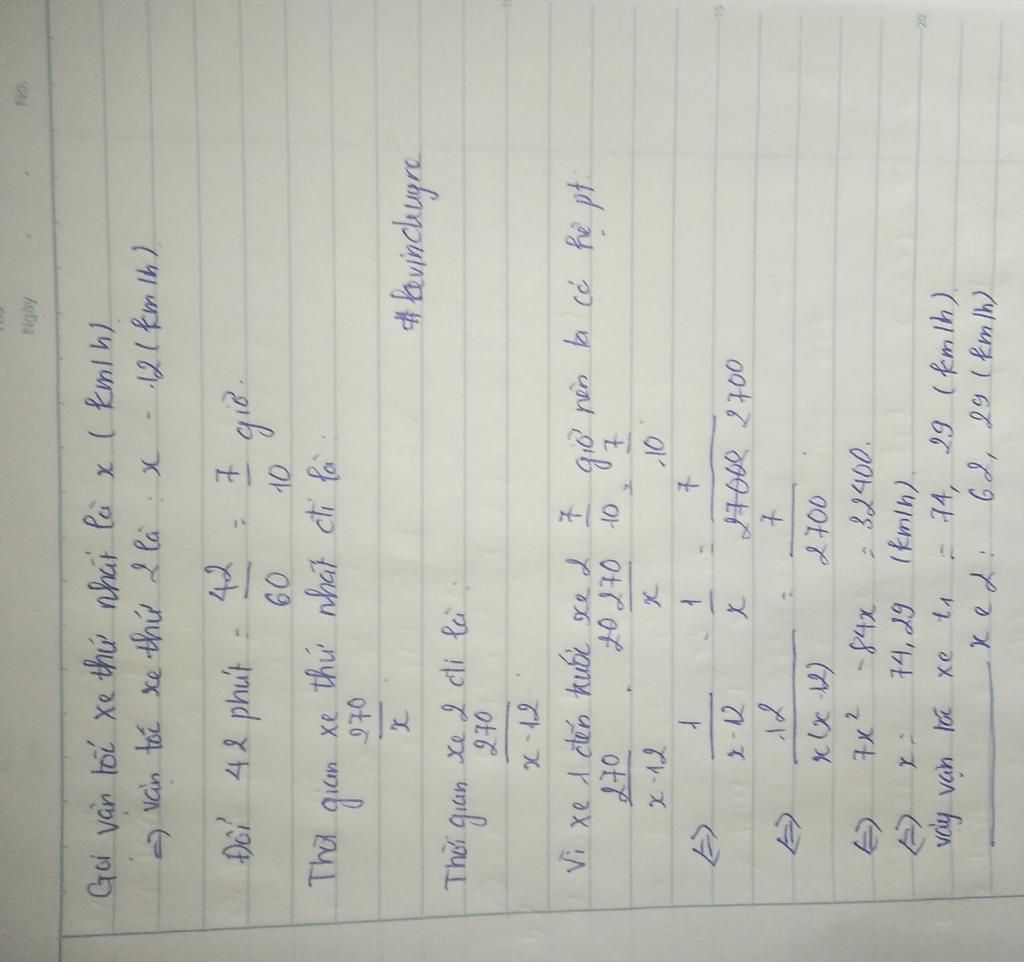 No.
Ngày
Gọi vận tốc xe thứ nhất là x (km/h)
=> vận tốc xe thứ 2 là : x - 12 (km/h)
Đổi 42 phút = 42/60 = 7/10 giờ.
Thời gian xe thứ nhất đi là :
270/x
#kevinchugra
Thời gian xe 2 đi là :
270/x-12
Vì xe 1 đến trước xe 2 7/10 giờ nên ta có hệ pt :
270/x-12 - 270/x = 7/10
<=> 1/x-12 - 1/x = 7/2700
<=> 12/x(x-12) = 7/2700
<=> 7x² - 84x = 32400.
<=> x = 74,29 (km/h)
vậy vận tốc xe 1 = 74,29 (km/h)
xe 2 : 62,29 (km/h)
15
20